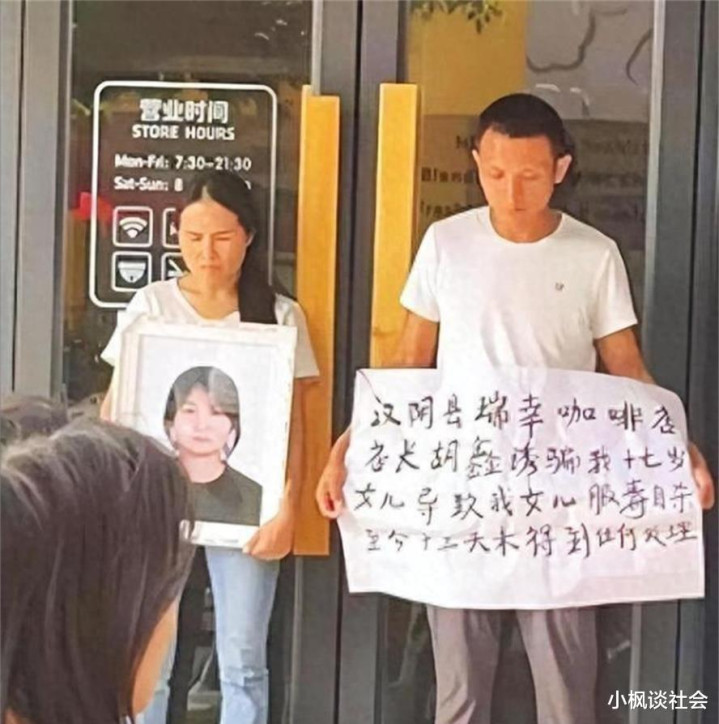 营业时间
STORE HOURS
Mon-Fri: 7:30-21:30
Sat-Sun: 8
汉阴县瑞幸咖啡店
店长胡鑫诱骗我十七岁
女儿导致我女儿服毒自杀
至今十三天未得到任何处理
小枫谈社会